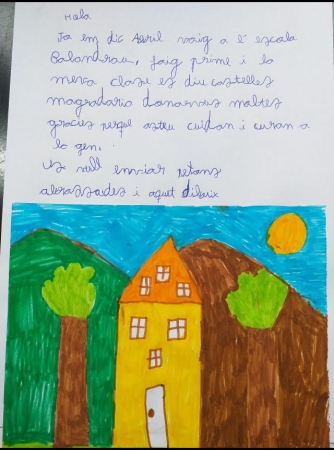 Hola
Jo em dic Abril vaig a l'escola
Balandrau, faig prime i la
meva clase es diu castelles
magradaria donarvus moltes
gracies perquè esteu cuidan i curan a
la gen.
us vull enviar petons
abrassades i aquet dibuix